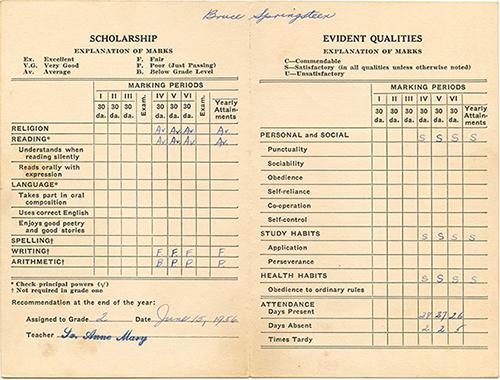 Bruce Springsteen
SCHOLARSHIP
EXPLANATION OF MARKS
Ex. Excellent F. Fair
V.G. Very Good P. Poor (Just Passing)
Av. Average B. Below Grade Level
MARKING PERIODS
I II III Exam. IV V VI Exam. Yearly Attain-ments
30 da. 30 da. 30 da. 30 da. 30 da. 30 da.
RELIGION Av Av Av Av
READING* Av Av Av Av
Understands when
reading silently
Reads orally with
expression
LANGUAGE*
Takes part in oral
composition
Uses correct English
Enjoys good poetry
and good stories
SPELLING†
WRITING† F F F F
ARITHMETIC† B P P P
* Check principal powers (√)
† Not required in grade one
Recommendation at the end of the year:
Assigned to Grade 2 Date June 15, 1956
Teacher Sr. Anne Mary
EVIDENT QUALITIES
EXPLANATION OF MARKS
C—Commendable
S—Satisfactory (in all qualities unless otherwise noted)
U—Unsatisfactory
MARKING PERIODS
I II III IV V VI Yearly Attain-ments
30 da. 30 da. 30 da. 30 da. 30 da. 30 da.
PERSONAL and SOCIAL S S S S
Punctuality
Sociability
Obedience
Self-reliance
Co-operation
Self-control
STUDY HABITS S S S S
Application
Perseverance
HEALTH HABITS S S S S
Obedience to ordinary rules
ATTENDANCE
Days Present 28 27 26
Days Absent 2 2
Times Tardy